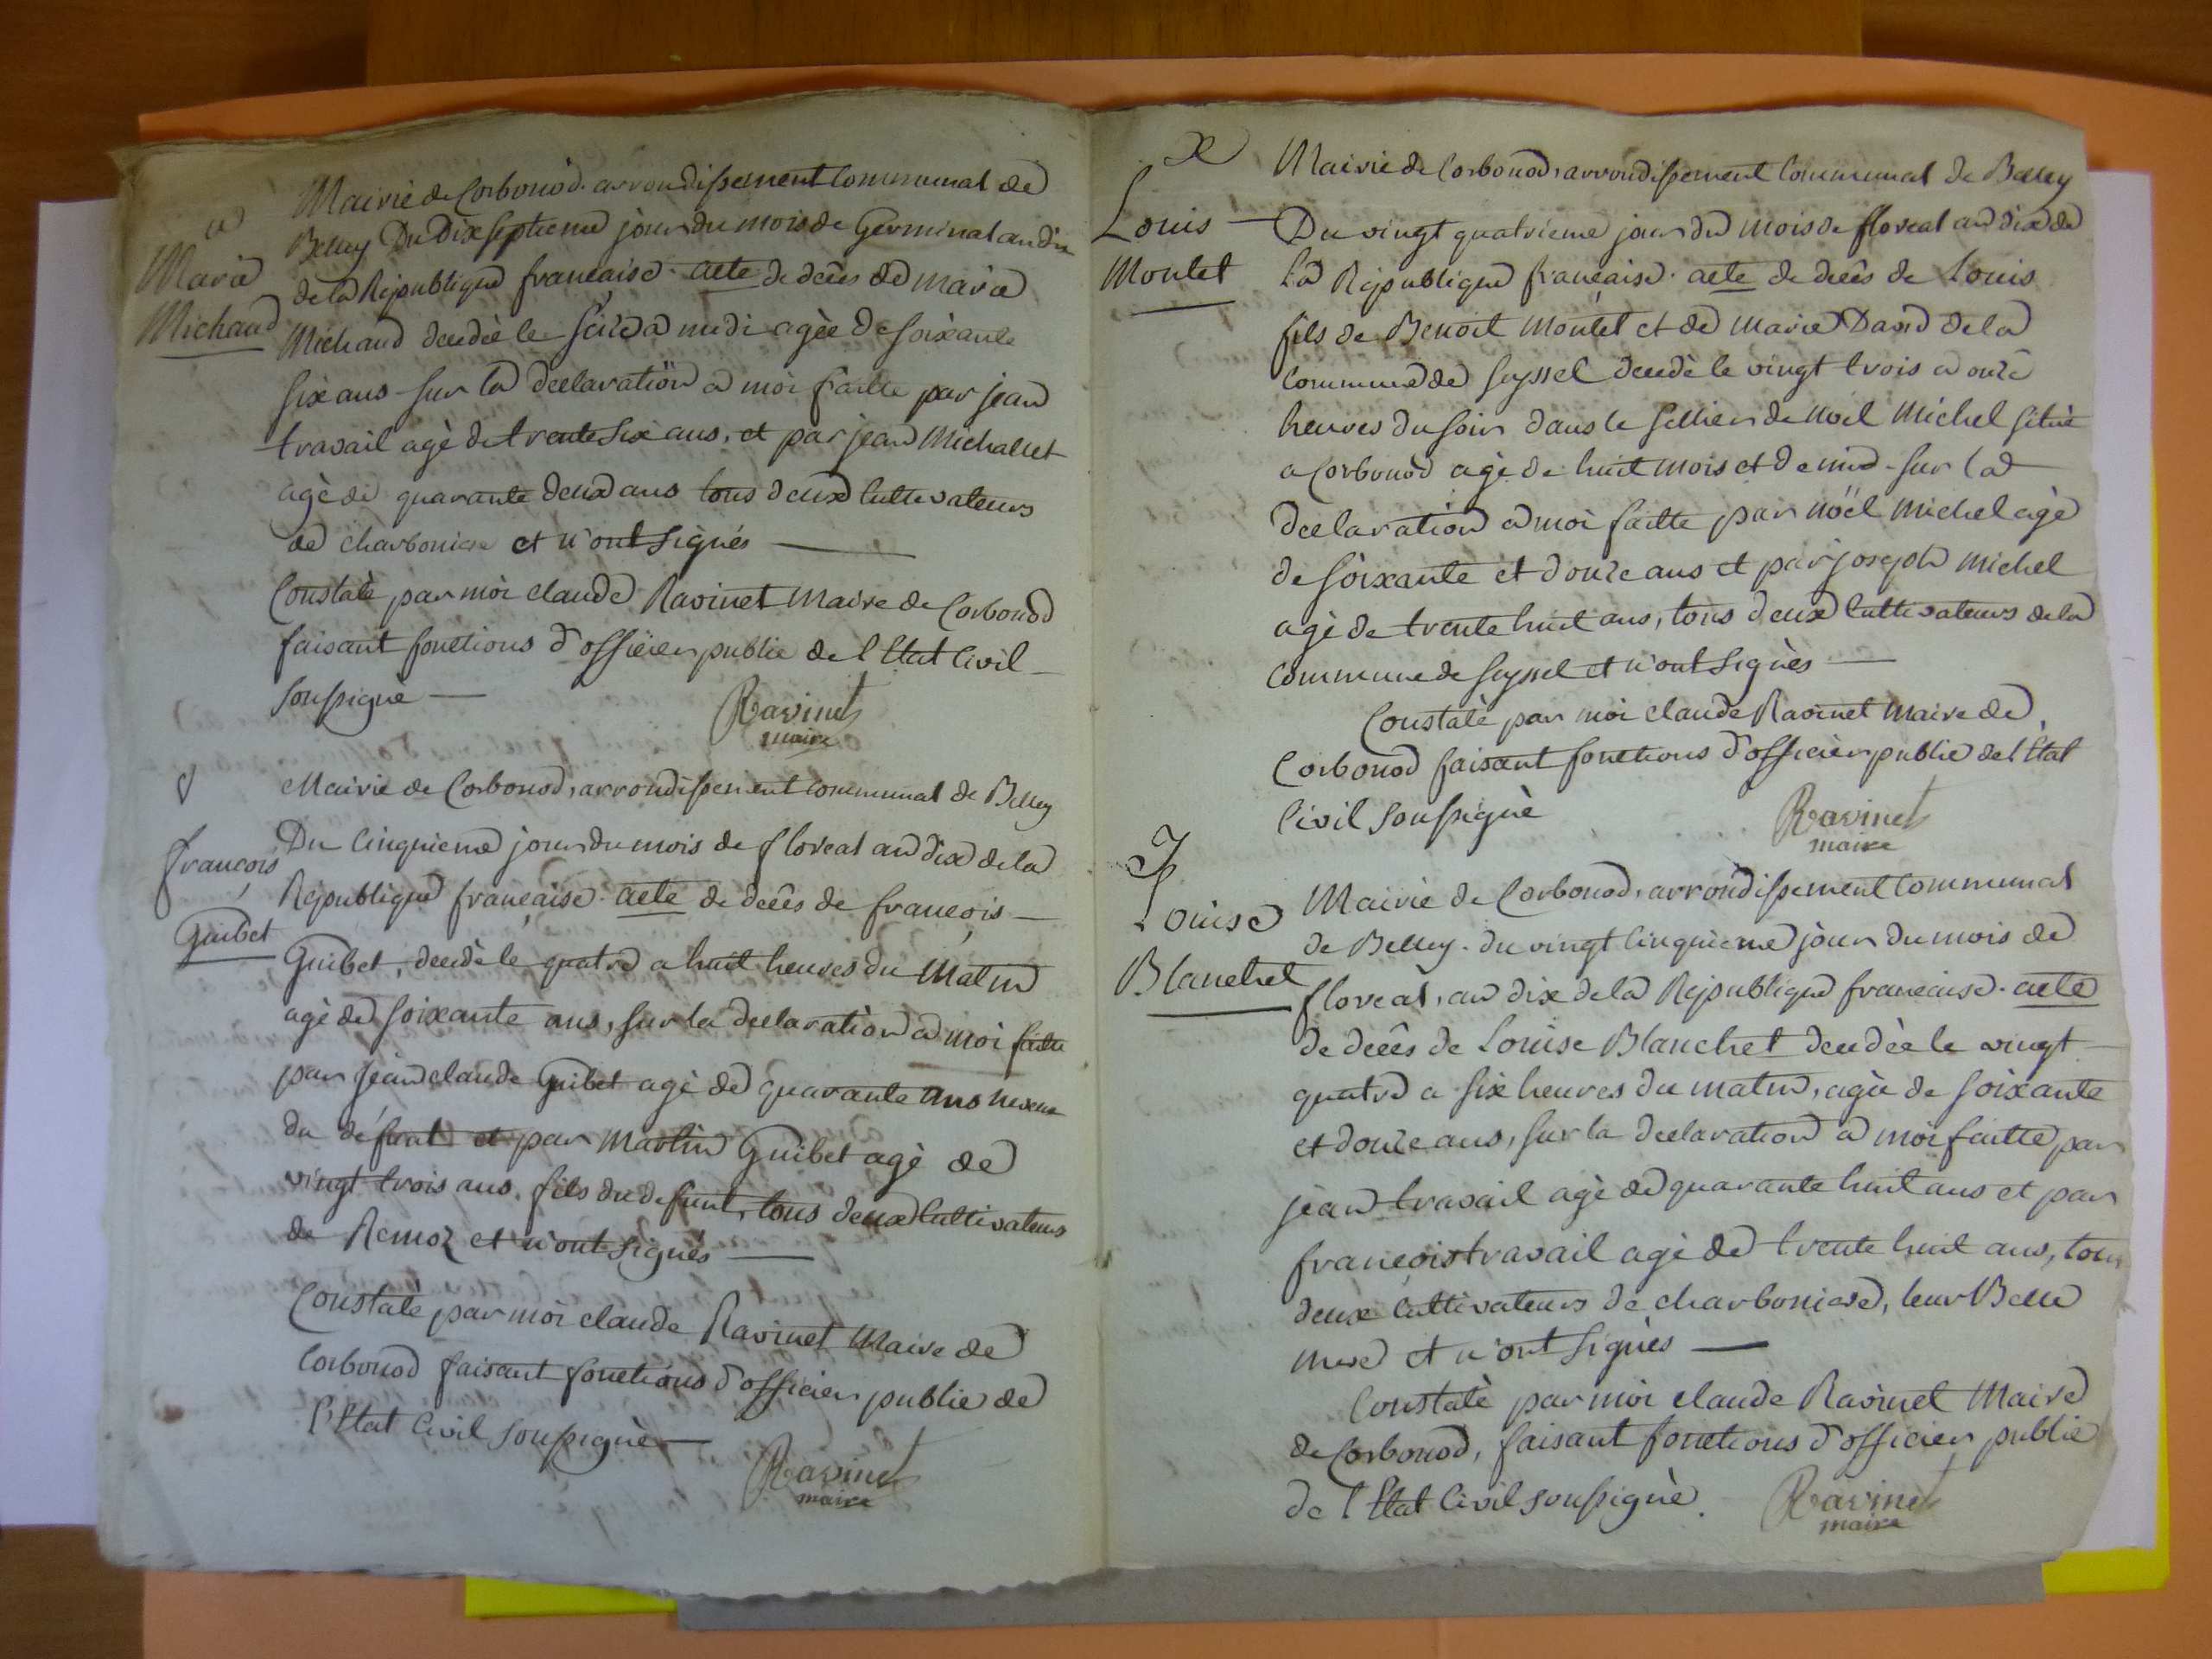 Marie
Michaud
Mairie de Corbonod. arrondissement Communal de
Belley Du Dix septieme jour du mois de Germinal an dix
de la Republique francaise. acte de decès de marie
Michaud decedée le seize a midi agèe de soixante
six ans - sur la declaration a moi faitte par jean
travail agè de trente six ans, et par jean Michallet
agè de quarante deux ans tous deux Cultivateurs
de charboniere et n'ont signés
Constatè par moi claude Ravinet Maire de Corbonod
faisant fonctions d'officier public de l'Etat Civil
soussignè
Ravinet
maire
françois
Guibet
Mairie de Corbonod, arrondissement Communal de Belley
Du Cinquieme jour du mois de floreal an dix de la
Republique française. acte de decès de françois
Guibet, decedè le quatre a huit heures du Matin
agè de soixante ans, sur la declaration a moi faitte
par jean claude Guibet agè de quarante ans neveu
du défunt et par Martin Guibet agè de
vingt trois ans. fils du defunt, tous deux Cultivateurs
de Remoz et n'ont signés
Constatè par moi claude Ravinet Maire de
Corbonod faisant fonctions d'officier public de
l'Etat Civil soussignè
Ravinet
maire
Louis
Montet
Mairie de Corbonod, arrondissement Communal de Belley
Du vingt quatrieme jour du mois de floreal an dix de
la Republique française. acte de decès de Louis
fils de Benoit Montet et de Marie David de la
Commune de Seyssel decedè le vingt trois a onze
heures du soir dans le sellier de Noel Michel situè
a Corbonod agè de huit mois et demie - sur la
declaration a moi faitte par noël Michel agè
de soixante et douze ans et par joseph Michel
agè de trente huit ans, tous deux Cultivateurs de la
Commune de Seyssel et n'ont signès
Constatè par moi claude Ravinet Maire de
Corbonod faisant fonctions d'officier public de l'Etat
Civil soussignè
Ravinet
maire
Louise
Blanchet
Mairie de Corbonod, arrondissement Communal
de Belley. du vingt Cinquieme jour du mois de
floreal, an dix de la Republique francaise. acte
de decès de Louise Blanchet decedèe le vingt
quatre a six heures du matin, agèe de soixante
et douze ans, sur la declaration a moi faitte par
jean travail agè de quarante huit ans et par
françois travail agè de trente huit ans, tous
deux Cultivateurs de charboniere, leur Belle
mere et n'ont signès
Constatè par moi claude Ravinet Maire
de Corbonod, faisant fonctions d'officier public
de l'Etat Civil soussignè.
Ravinet
maire